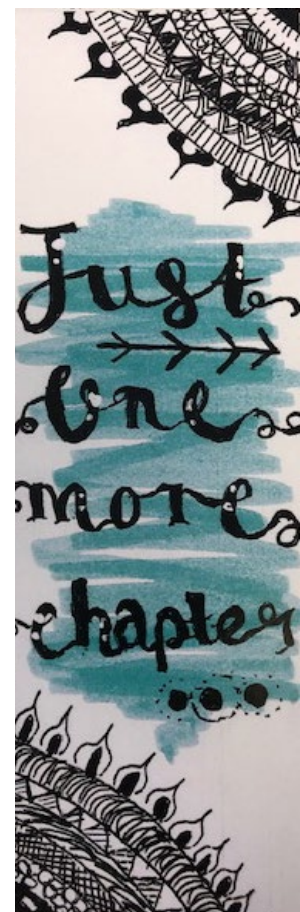 Just
One
more
chapter
...